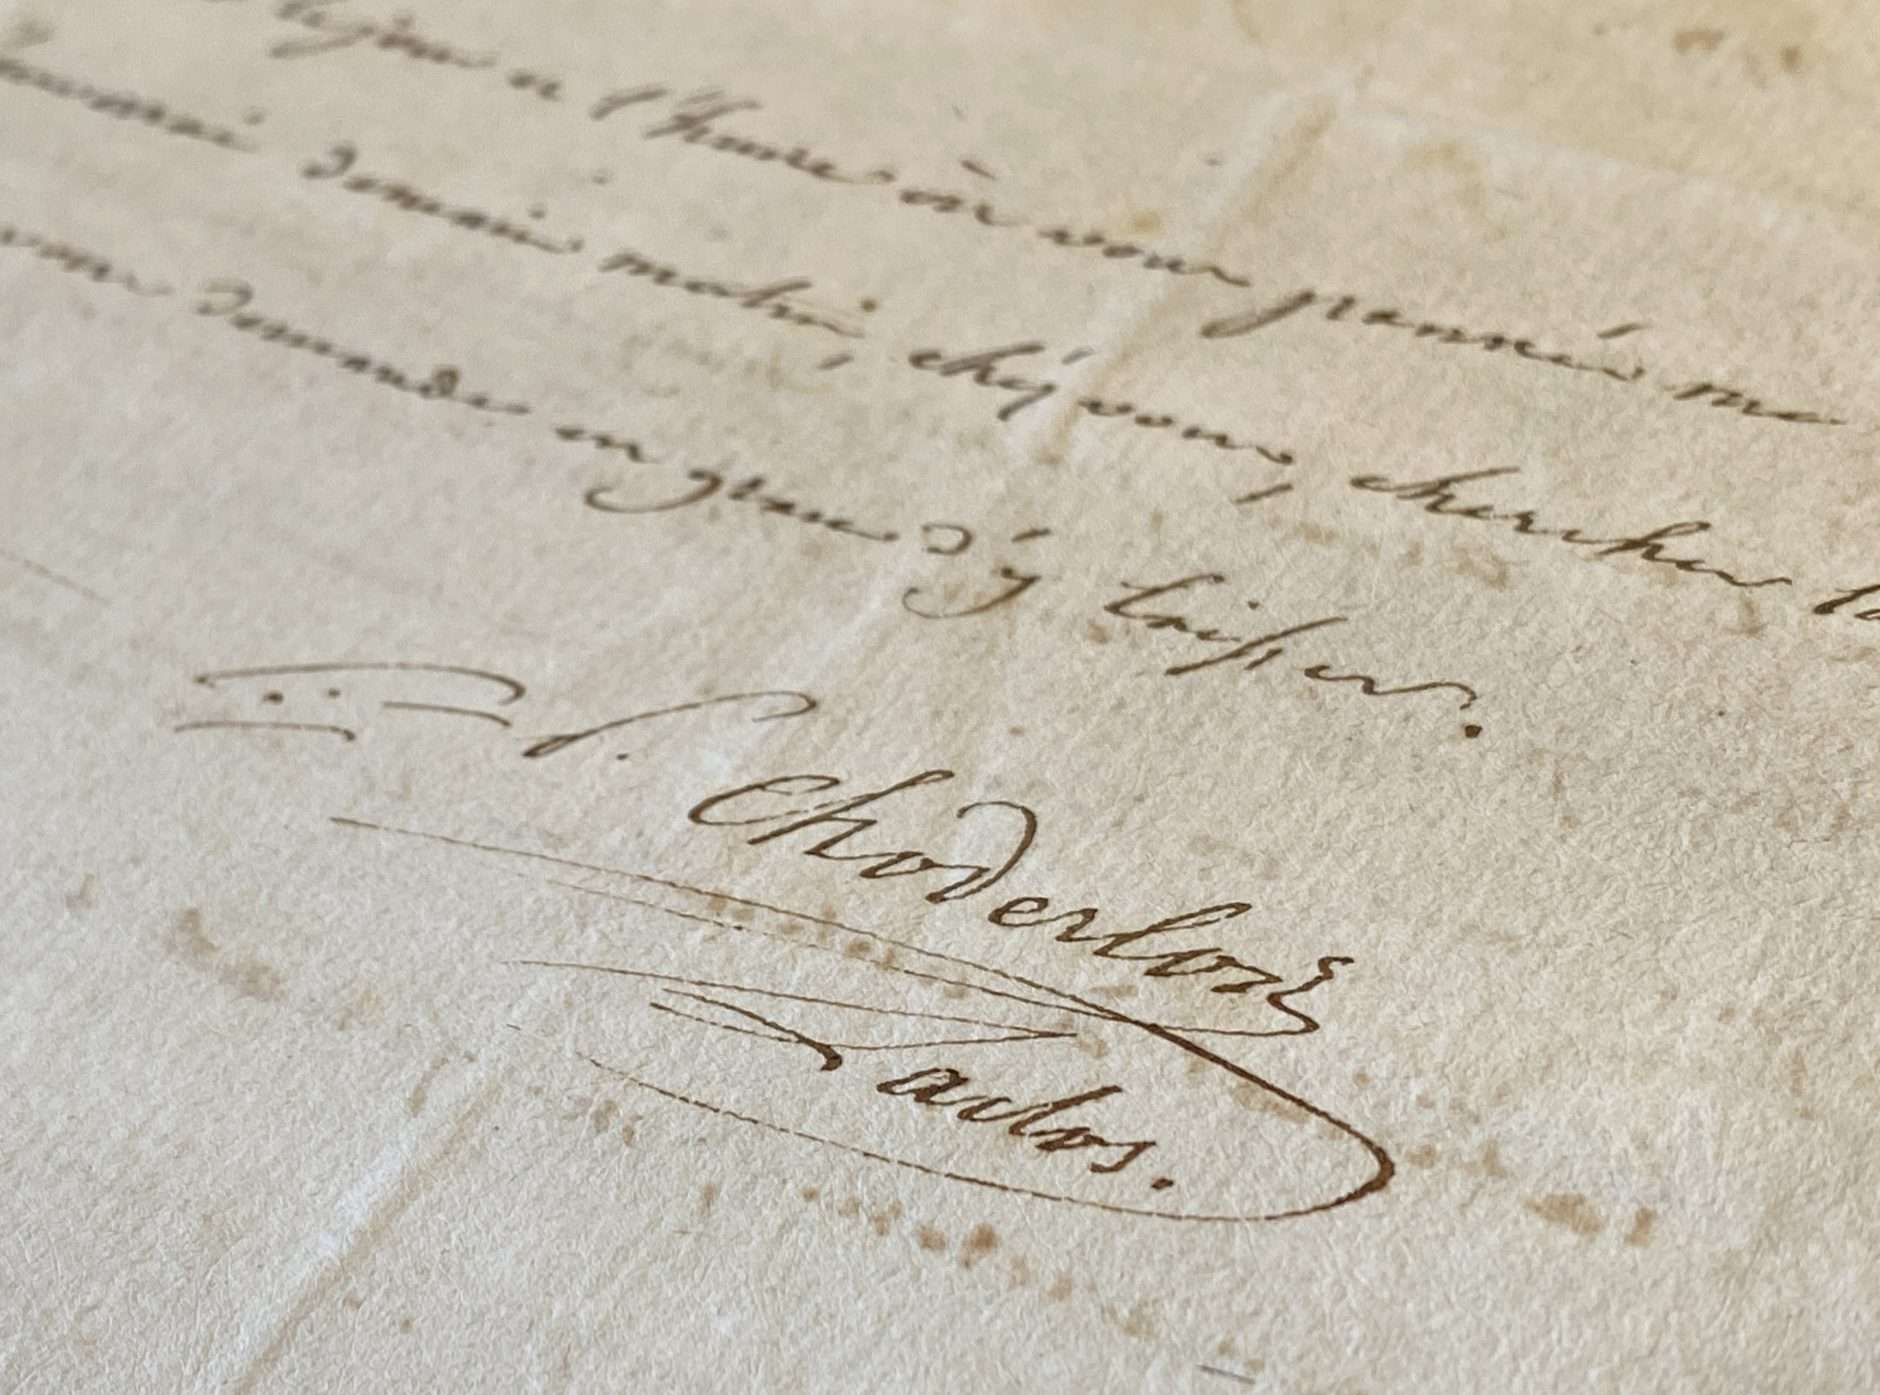 et l'heure où vous pourrés me
demain matin, chéz vous, chercher la
vous demande en grace d'y laisser.
P. Choderlos
Laclos.